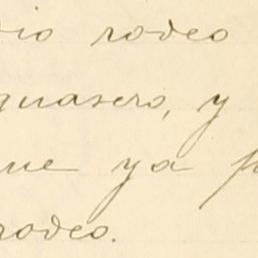 dio rodeo
guasero, y
que ya p
rodeo.